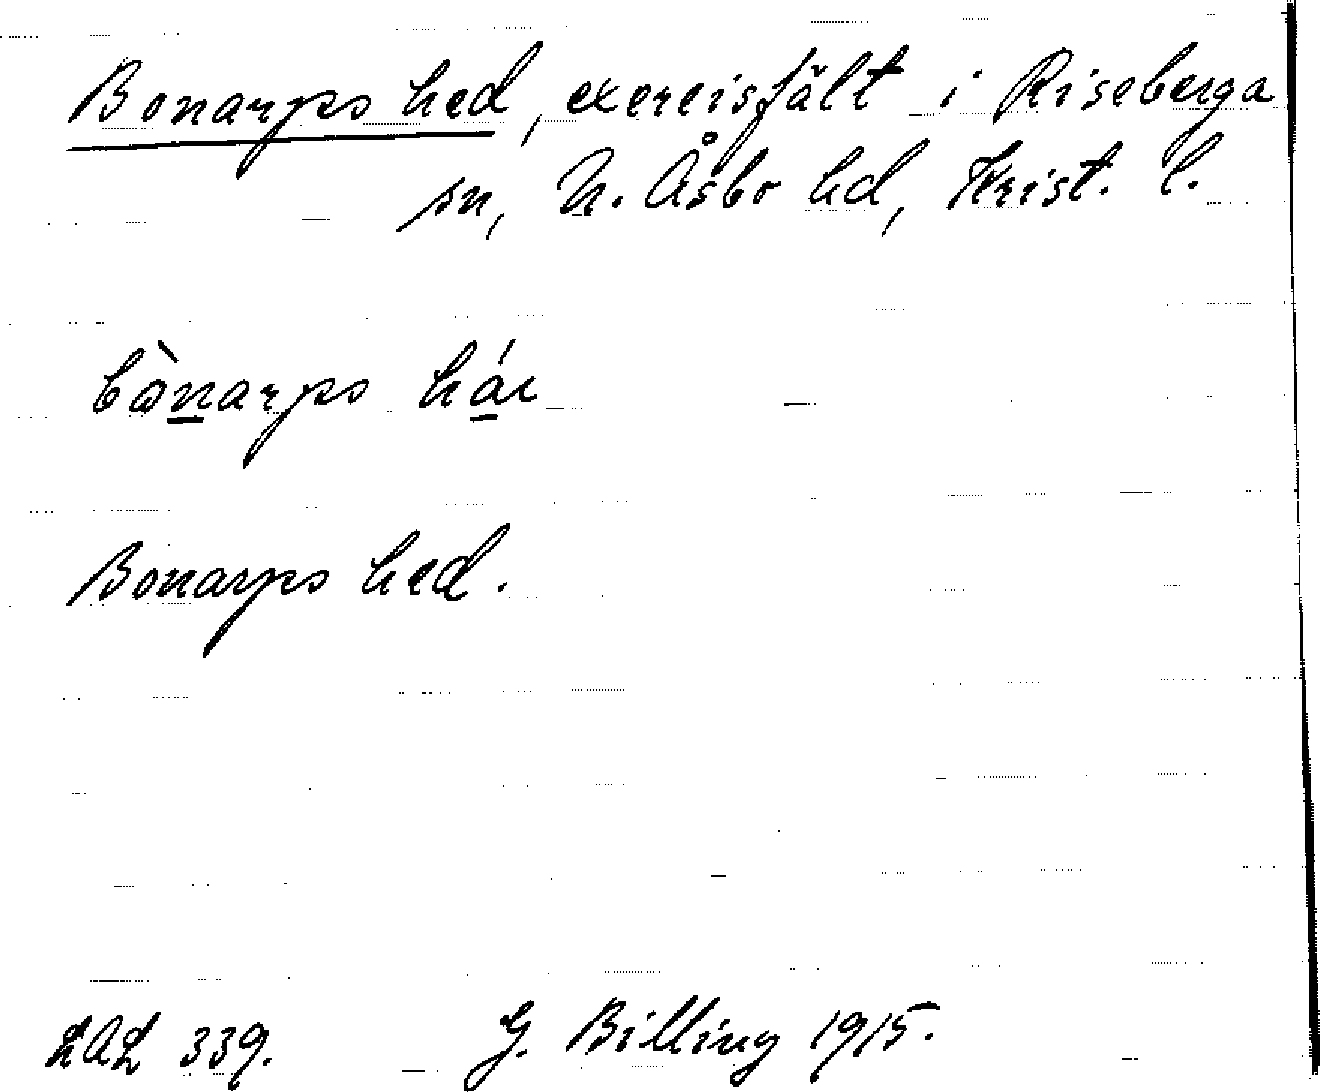 Bonarps hed, exercisfält i Riseberga
sn, N. Åsbo hd, Krist. l.
bònarps háı
Bonarps hed.
LAL 339. G. Billing 1915.